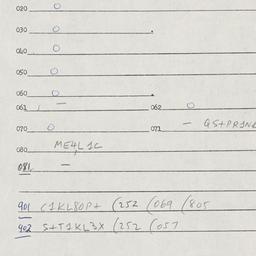 020 O
030 O
040 O
050 O
060 O
061 — 062 O
070 O 071 — QS+PRING
080 ME4L1C
081 —
901 C1KL8OP+ (252 (069 (805
902 S+T1KL3X (252 (057